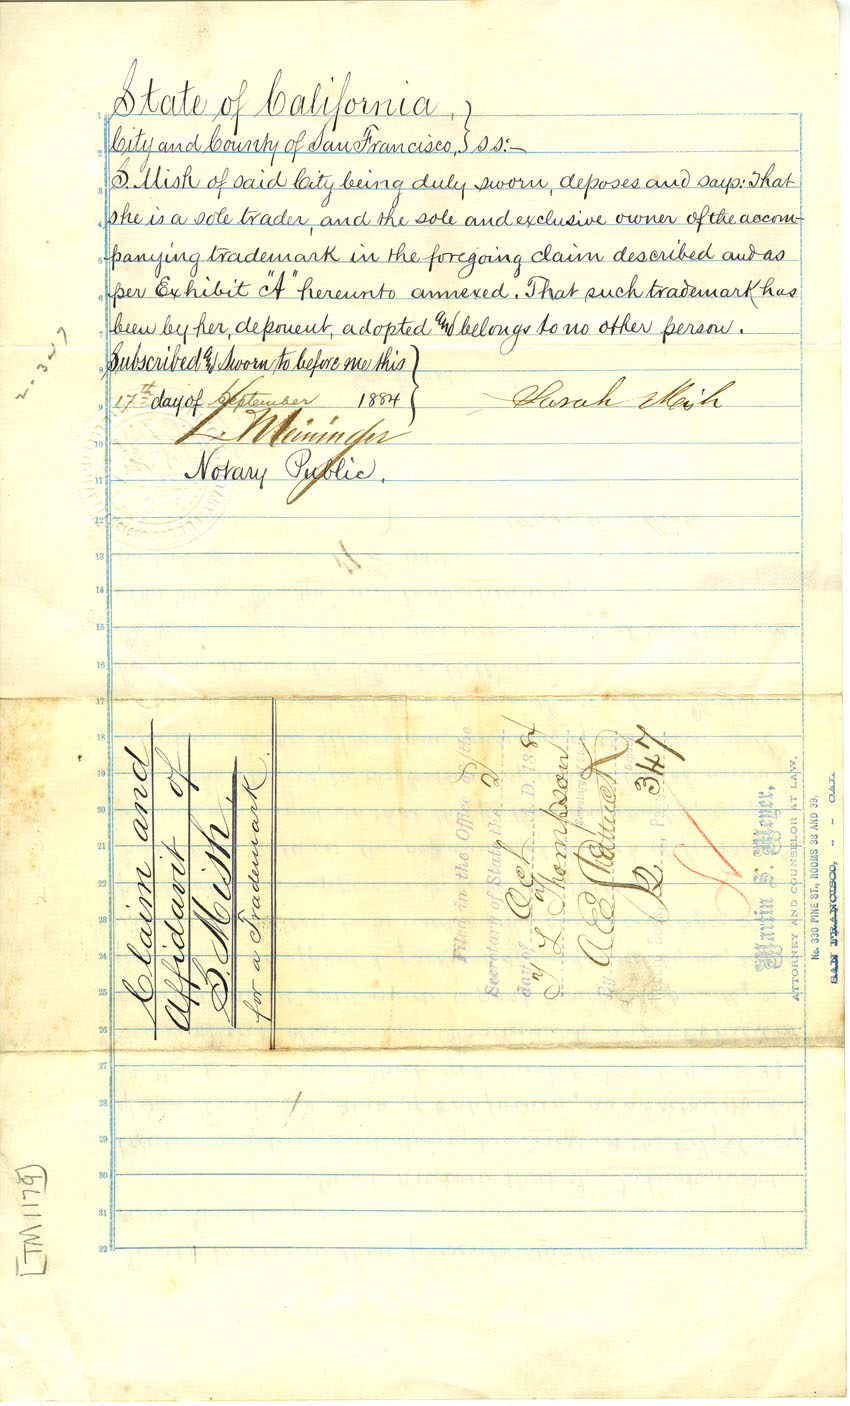 State of California, }
City and County of San Francisco, } ss:-
S. Mish of said City being duly sworn, deposes and says: That
she is a sole trader, and the sole and exclusive owner of the accom-
panying trademark in the foregoing claim described and as
per Exhibit "A" hereunto annexed. That such trademark has
been by her, deponent, adopted and belongs to no other person.
Subscribed and sworn to before me this
17th day of September 1884
Sarah Mish
L. Meininger
Notary Public.
2-327
Claim and
Affidavit of
S. Mish,
for a Trademark.
Filed in the Office of the
Secretary of State the 2
day of Oct A.D. 1884
Thompson
Secretary of State
By A E
Record Book 2, Page 347
Martin S. Meyer,
ATTORNEY AND COUNSELOR AT LAW,
No. 330 PINE ST., ROOMS 38 AND 39,
SAN FRANCISCO, - - CAL.
[TM 1179]
1
2
3
4
5
6
7
8
9
10
11
12
13
14
15
16
17
18
19
20
21
22
23
24
25
26
27
28
29
30
31
32